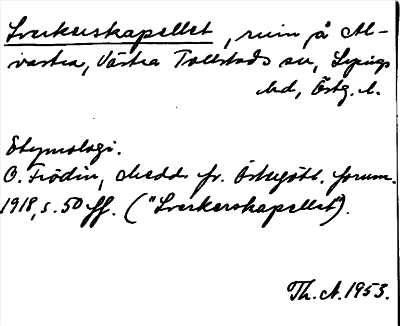 Sverkerskapellet, ruin på Al-
vastra, Västra Tollstads sn, Lysings
hd, Östg. l.
Etymologi.
O. Frödin, Medd. fr. Östergötl. fornm.
1918, s. 50 ff. ("Sverkerskapellet").
Th. A. 1953.